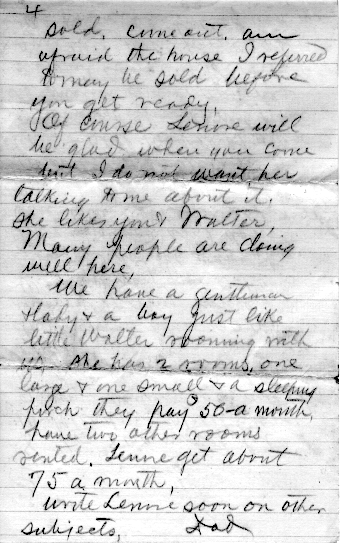 4
sold, come out, am
afraid the house I referred
to may be sold before
you get ready.
Of course Lenore will
be glad when you come
but I do not want her
talking to me about it.
she likes you & Walter,
Many people are doing
well here,
We have a gentleman
& lady & a boy just like
little Walter rooming with
us, she has 2 rooms, one
large & one small & a sleeping
porch they pay 50- a month,
have two other rooms
rented. Lenore get about
75 a month,
write Lenore soon on other
subjects, Dad